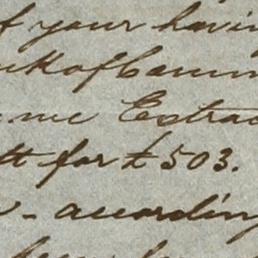 f your havin
k of Comm
me Extrac
tt for £503.
- accordin